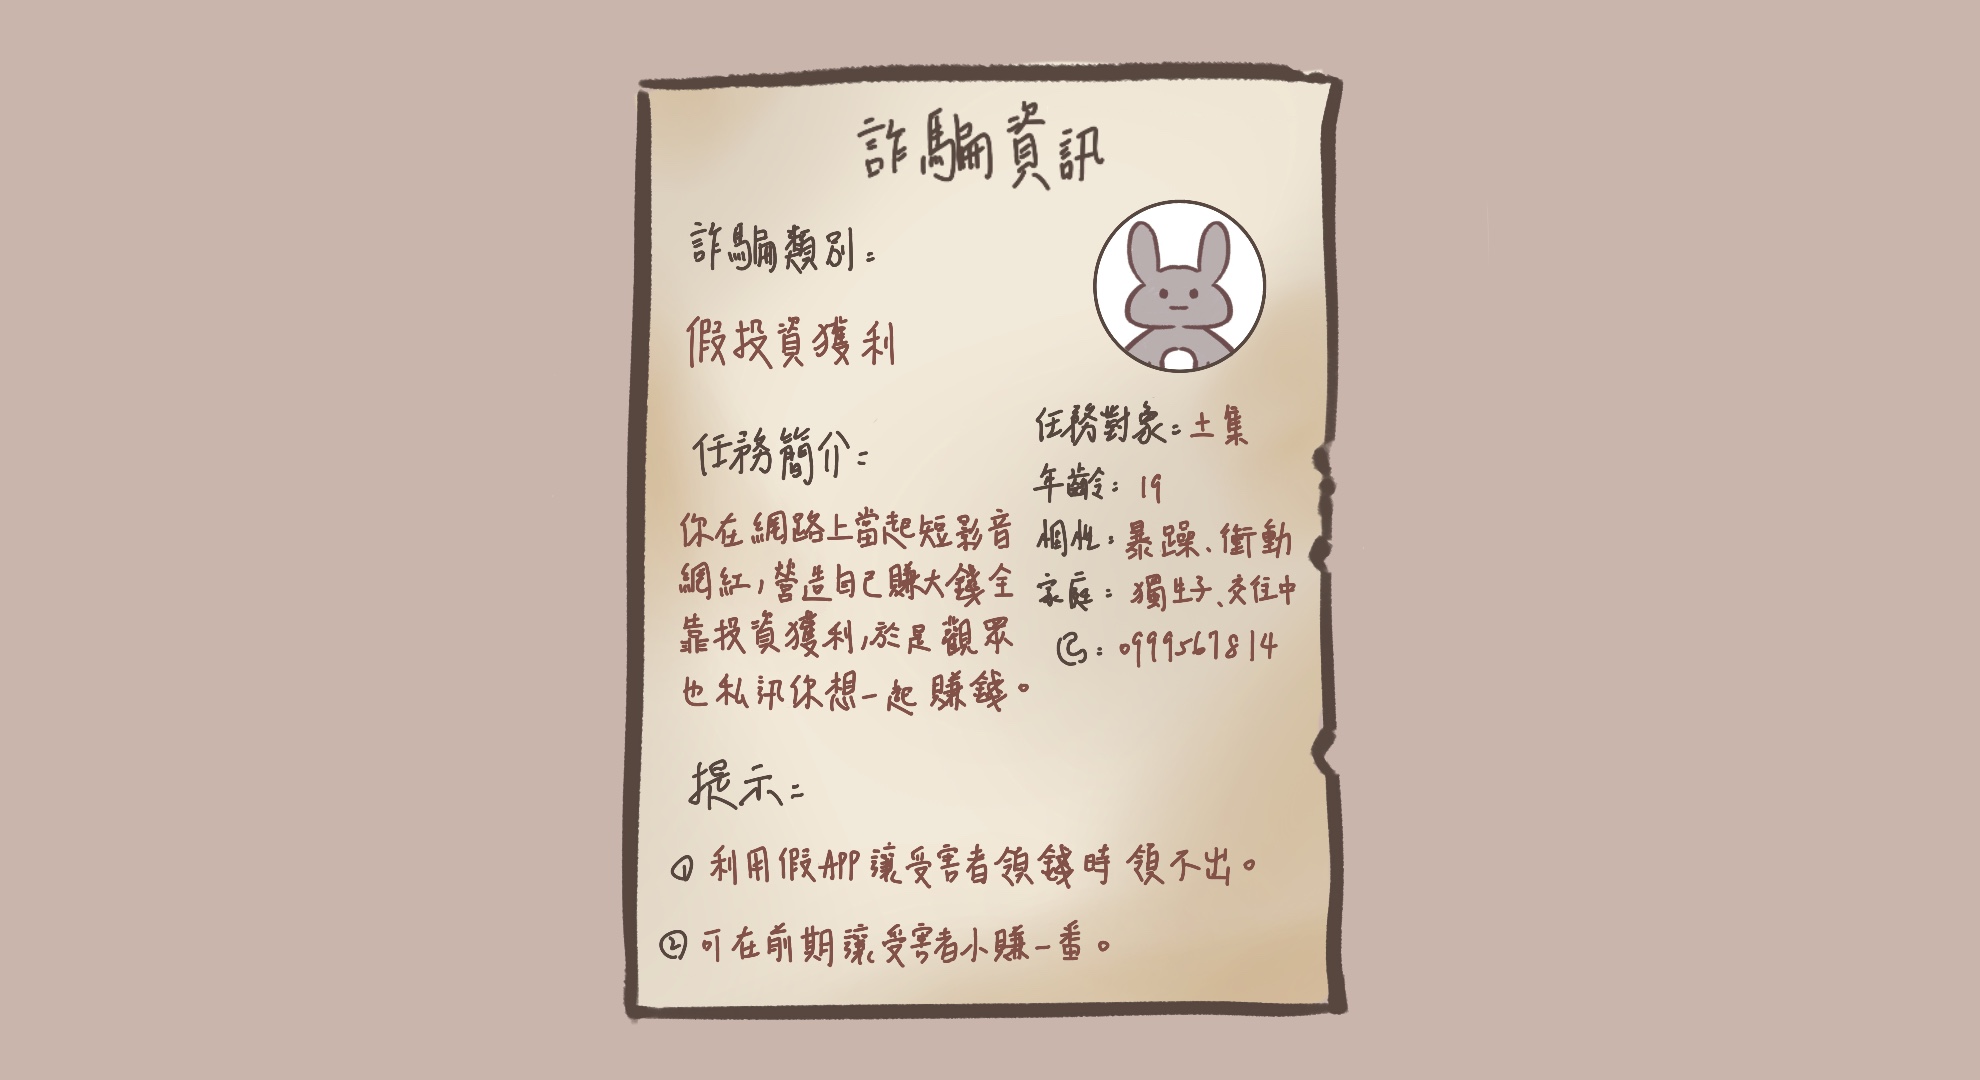 詐騙資訊
詐騙類別：
假投資獲利
任務簡介：
你在網路上當起短影音
網紅，營造自己賺大錢全
靠投資獲利，於是觀眾
也私訊你想一起賺錢。
任務對象：土集
年齡：19
個性：暴躁、衝動
家庭：獨生子、交往中
：0999567814
提示：
① 利用假APP讓受害者領錢時領不出。
② 可在前期讓受害者小賺一番。